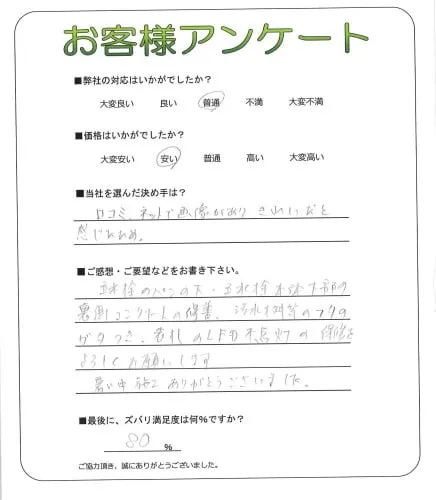 お客様アンケート
■弊社の対応はいかがでしたか？
大変良い 良い 普通 不満 大変不満
■価格はいかがでしたか？
大変安い 安い 普通 高い 大変高い
■当社を選んだ決め手は？
口コミ、ネットで画像があり きれいだと
感じたため。
■ご感想・ご要望などをお書き下さい。
立水栓の の下・立水栓 本体下部の
裏側コンクリートの補修、汚水 等のフタの
ガタつき、表札のLED不点灯の 保修を
よろしくお願いします
暑い中施工ありがとうございました。
■最後に、ズバリ満足度は何％ですか？
80 ％
ご協力頂き、誠にありがとうございました。